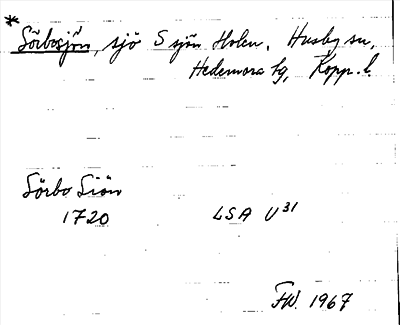 * Sörbosjön, sjö S sjön Holen, Husby sn,
Hedemora tg, Kopp. l.
Sörbo Siön
1720 LSA U31
FW. 1967